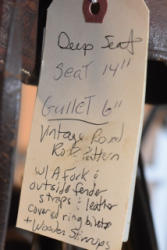 Deep Seat
Seat 14"
Gullet 6"
Vintage
Pattern
W/ A Fork &
outside fender
straps & leather
covered ring
+ Wooden Stirrups